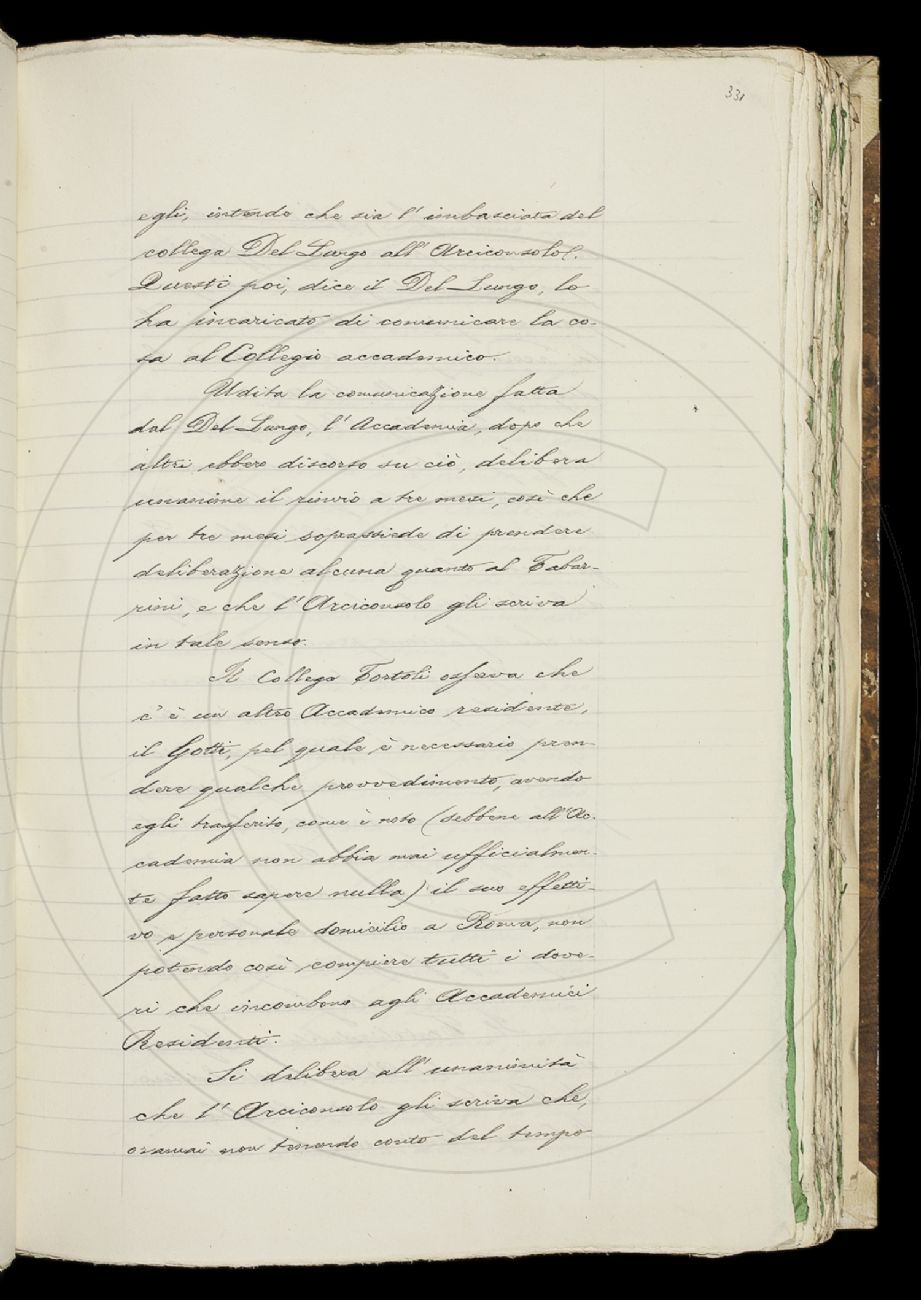 331
egli, intendo che sia l'imbasciata del
collega Del Lungo all'Arciconsolo(.
Questi poi, dice il Del Lungo, lo
ha incaricato di comunicare la co-
sa al Collegio accademico.
Udita la comunicazione fatta
dal Del Lungo, l'Accademia, dopo che
altri ebbero discorso su ciò, delibera
unanime il rinvio a tre mesi, così che
per tre mesi soprassiede di prendere
deliberazione alcuna quanto al Tabar-
rini, e che l'Arciconsolo gli scriva
in tale senso.
Il Collega Tortoli osserva che
c'è un altro Accademico residente,
il Gotti, pel quale è necessario pren-
dere qualche provvedimento, avendo
egli trasferito, come è noto (sebbene all'Ac-
cademia non abbia mai ufficialmen-
te fatto sapere nulla) il suo effetti-
vo e personale domicilio a Roma, non
potendo così compiere tutti i dove-
ri che incombono agli Accademici
Residenti.
Si delibera all'unanimità
che l'Arciconsolo gli scriva che,
oramai non tenendo conto del tempo